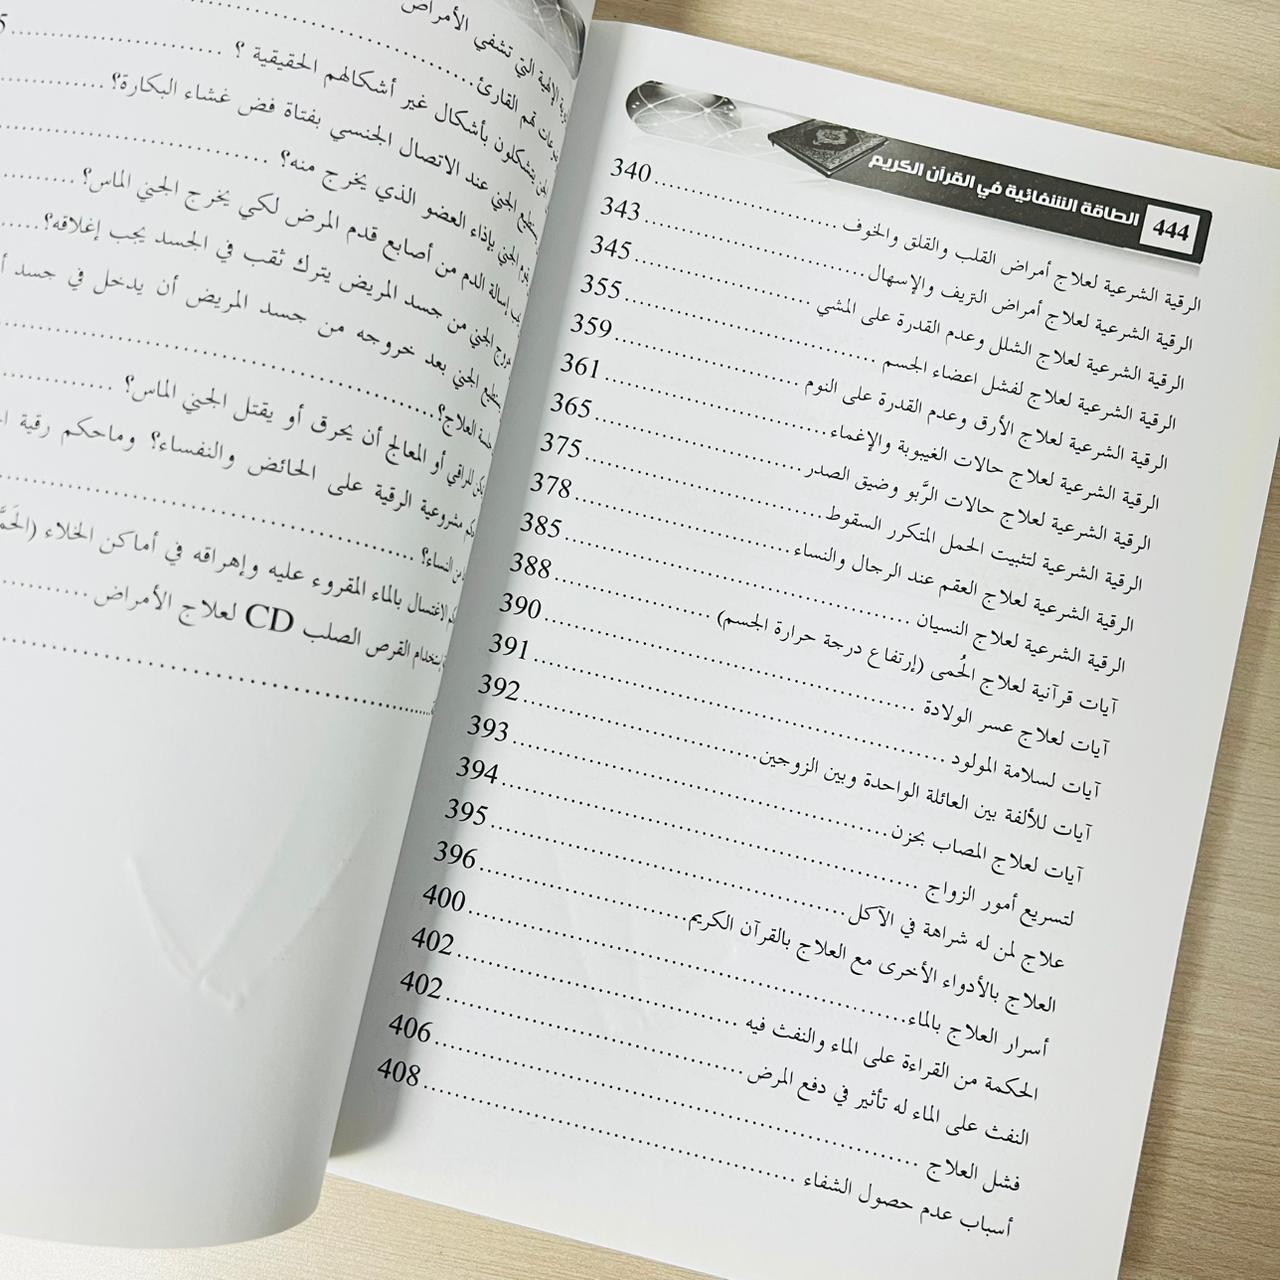 444 الطاقة الشفائية في القرآن الكريم
الرقية الشرعية لعلاج أمراض القلب والقلق والخوف ............ 340
الرقية الشرعية لعلاج أمراض النزيف والإسهال ............ 343
الرقية الشرعية لعلاج الشلل وعدم القدرة على المشي ............ 345
الرقية الشرعية لعلاج لفشل اعضاء الجسم ............ 355
الرقية الشرعية لعلاج الأرق وعدم القدرة على النوم ............ 359
الرقية الشرعية لعلاج حالات الغيبوبة والإغماء ............ 361
الرقية الشرعية لعلاج حالات الرَّبو وضيق الصدر ............ 365
الرقية الشرعية لتثبيت الحمل المتكرر السقوط ............ 375
الرقية الشرعية لعلاج العقم عند الرجال والنساء ............ 378
الرقية الشرعية لعلاج النسيان ............ 385
آيات قرآنية لعلاج الحُمى (إرتفاع درجة حرارة الجسم) ............ 388
آيات لعلاج عسر الولادة ............ 390
آيات لسلامة المولود ............ 391
آيات للألفة بين العائلة الواحدة وبين الزوجين ............ 392
آيات لعلاج المصاب بحزن ............ 393
لتسريع أمور الزواج ............ 394
علاج لمن له شراهة في الآكل ............ 395
العلاج بالأدواء الأخرى مع العلاج بالقرآن الكريم ............ 396
أسرار العلاج بالماء ............ 400
الحكمة من القراءة على الماء والنفث فيه ............ 402
النفث على الماء له تأثير في دفع المرض ............ 402
فشل العلاج ............ 406
أسباب عدم حصول الشفاء ............ 408
الإلهية التي تشفي الأمراض
تهم القارئ ............
يتشكلون بأشكال غير أشكالهم الحقيقية ؟ ............
الجني عند الاتصال الجنسي بفتاة فض غشاء البكارة؟ ............
الجني بإذاء العضو الذي يخرج منه؟ ............
إسالة الدم من أصابع قدم المرض لكي يخرج الجني الماس؟ ............
الجني من جسد المريض يترك ثقب في الجسد يجب إغلاقه؟ ............
الجني بعد خروجه من جسد المريض أن يدخل في جسد
العلاج؟ ............
للراقي أو المعالج أن يحرق أو يقتل الجني الماس؟ ............
مشروعية الرقية على الحائض والنفساء؟ وماحكم رقية
من النساء؟ ............
الاغتسال بالماء المقروء عليه وإهراقه في أماكن الخلاء
القرص الصلب CD لعلاج الأمراض ............